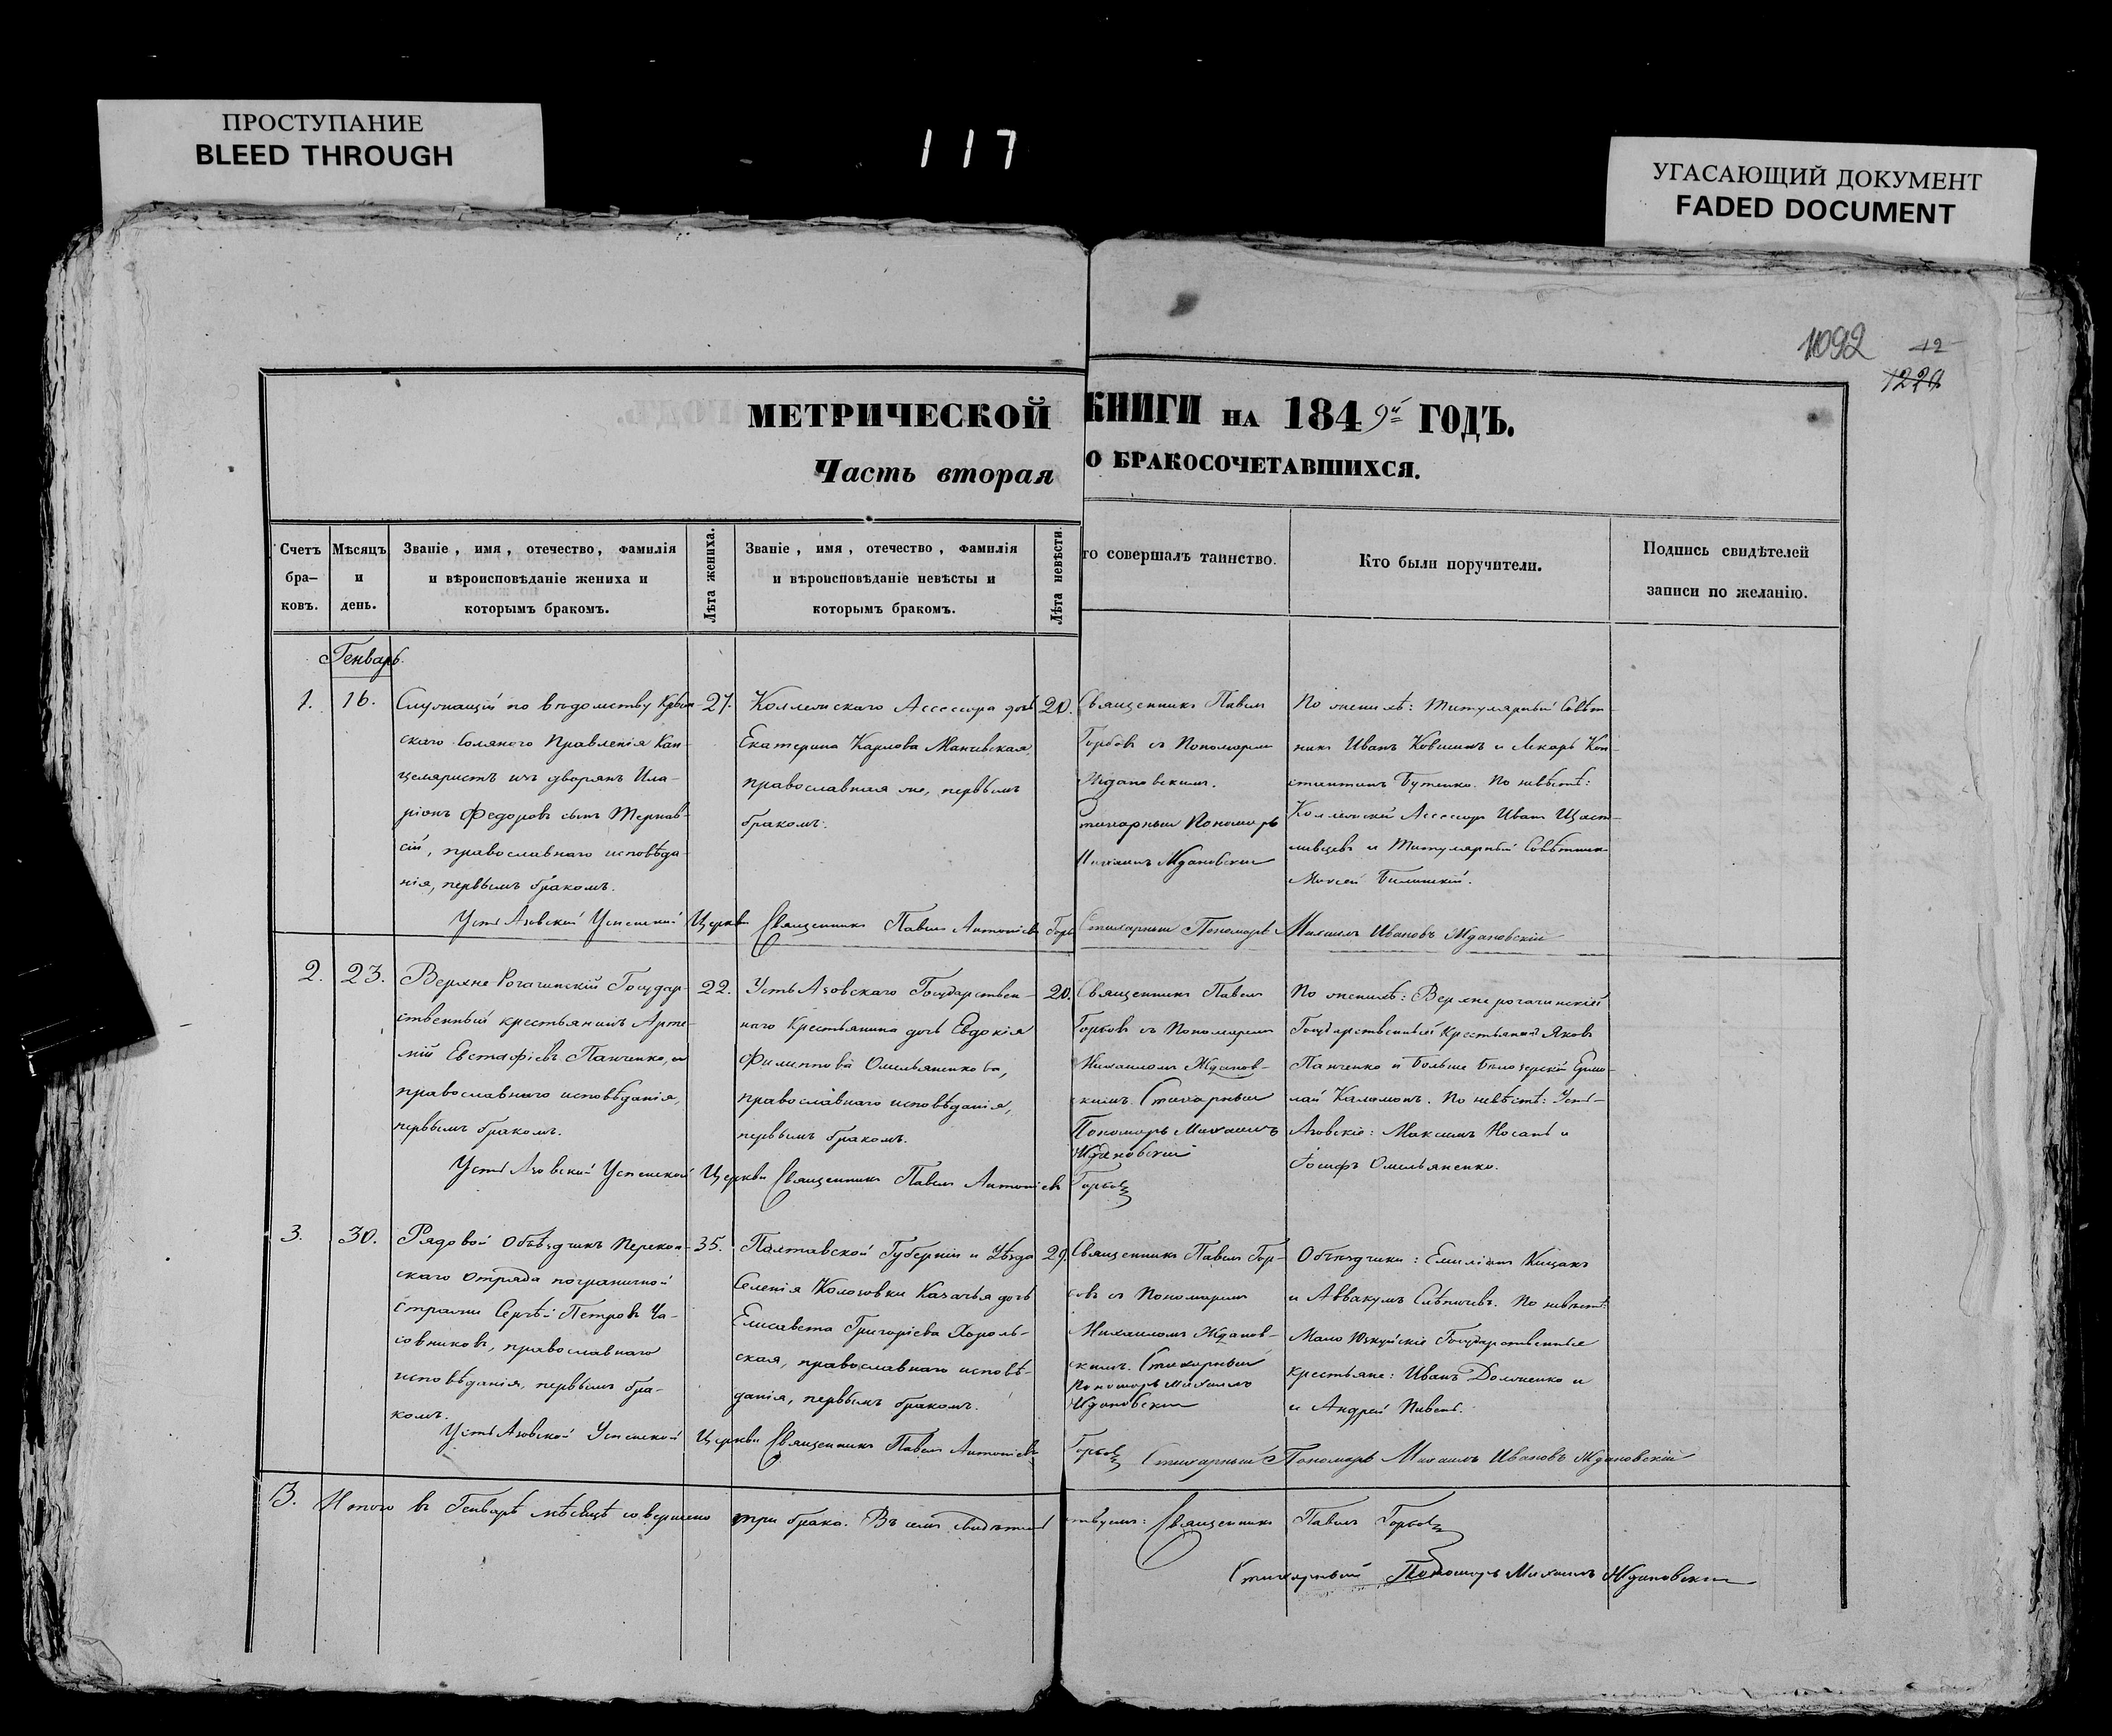 ПРОСТУПАНИЕ
BLEED THROUGH
117
УГАСАЮЩИЙ ДОКУМЕНТ
FADED DOCUMENT
1092
12
МЕТРИЧЕСКОЙ КНИГИ НА 1849й ГОДЪ.
Часть вторая О БРАКОСОЧЕТАВШИХСЯ.
Счетъ
бра-
ковъ.
Мѣсяцъ
и
день.
Званіе, имя, отечество, фамилія
и вѣроисповѣданіе жениха и
которымъ бракомъ.
Лѣта жениха.
Званіе, имя, отечество, фамилія
и вѣроисповѣданіе невѣсты и
которымъ бракомъ.
Лѣта невѣсты.
то совершалъ таинство.
Кто были поручители.
Подпись свидѣтелей
записи по желанію.
Генварь.
1.
16.
Служащій по вѣдомству Крым-
скаго Солянаго Правленія Кан-
целяристъ изъ дворянъ Ила-
ріонъ Федоровъ сынъ Тернав-
сій, православнаго исповѣда-
нія, первымъ бракомъ.
27.
Коллежскаго Ассесора дочь
Екатерина Карлова
православная же, первымъ
бракомъ.
20.
Священникъ Павелъ
Горбовъ съ Пономаремъ
Ждановскимъ.
Стихарный Пономарь
Михаилъ Ждановскій
По женихѣ: Титулярный Совѣт-
никъ Иванъ и Лекарь Кон-
стантинъ Бутенко. По невѣстѣ:
Коллежскій Ассесоръ Иванъ Щаст-
ливцевъ и Титулярный Совѣтникъ
Моисей
Усть Азовской Успенской Церкви Священникъ Павелъ Антоніевъ Горб
Стихарный Пономарь Михаилъ Ивановъ Ждановскій
2.
23.
Верхне Рогачинскій Государ-
ственный крестьянинъ Арте-
мій Евстафіевъ Панченко,
православнаго исповѣданія,
первымъ бракомъ.
22.
Усть Азовскаго Государствен-
наго Крестьянина дочь Евдокія
Филиппова Омельяненкова,
православнаго исповѣданія,
первымъ бракомъ.
20.
Священникъ Павелъ
Горбовъ съ Пономаремъ
Михаиломъ Жданов-
скимъ. Стихарный
Пономарь Михаилъ
Ждановскій
По женихѣ: Верхне рогачинскій
Государственный Крестьянинъ Яковъ
Панченко и Больше Бѣлозерскій Ермо-
лай. По невѣстѣ: Усть-
Азовскіе: Максимъ Носань и
Іосифъ Омельяненко.
Усть Азовской Успенской Церкви Священникъ Павелъ Антоніевъ Горбовъ
3.
30.
Рядовой Объѣздчикъ Перекоп-
скаго Отряда пограничной
стражи Сергѣй Петровъ Ча-
совниковъ, православнаго
исповѣданія, первымъ бра-
комъ.
35.
Полтавской Губерніи и Уѣзда
Селенія Казачья дочь
Елисавета Григоріева Хороль-
ская, православнаго исповѣ-
данія, первымъ бракомъ.
29.
Священникъ Павелъ Гор-
бовъ съ Пономаремъ
Михаиломъ Жданов-
скимъ. Стихарный
Пономарь Михаилъ
Ждановскій
Объѣздчики: Емиліанъ Кицакъ
и Аввакумъ. По невѣстѣ:
Мало Государственные
крестьяне: Иванъ и
и Андрей Пивень.
Усть Азовской Успенской Церкви Священникъ Павелъ Антоніевъ Горбовъ Стихарный Пономарь Михаилъ Ивановъ Ждановскій
3. Итого въ Генварѣ мѣсяцѣ совершено три брака. Въ семъ свидѣтельствуемъ: Священникъ Павелъ Горбовъ
Стихарный Пономарь Михаилъ Ждановскій